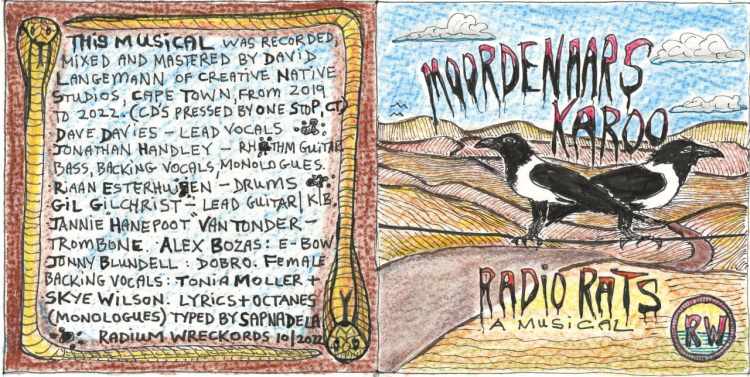 THIS MUSICAL WAS RECORDED,
MIXED AND MASTERED BY DAVID
LANGEMANN OF CREATIVE NATIVE
STUDIOS, CAPE TOWN, FROM 2019
TO 2022. (CD'S PRESSED BY ONE STOP, CT)
DAVE DAVIES - LEAD VOCALS
JONATHAN HANDLEY - RHYTHM GUITAR,
BASS, BACKING VOCALS, MONOLOGUES.
RIAAN ESTERHUIZEN - DRUMS
GIL GILCHRIST - LEAD GUITAR/K.B.
JANNIE "HANEPOOT" VAN TONDER -
TROMBONE. ALEX BOZAS: E-BOW
JONNY BLUNDELL: DOBRO. FEMALE
BACKING VOCALS: TONIA MOLLER +
SKYE WILSON. LYRICS + OCTANES
(MONOLOGUES) TYPED BY SAPNA DELA
RADIUM WRECKORDS 10/2022
MOORDENAARS
KAROO
RADIO RATS
A MUSICAL
RW